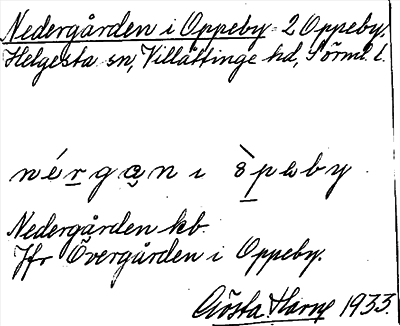 Nedergården i Oppeby 2 Oppeby.
Helgesta sn, Villåttinge hd, Sörml. l.
nérgan i òpaby
Nedergården kb
Jfr Övergården i Oppeby.
Gösta Harne 1933.